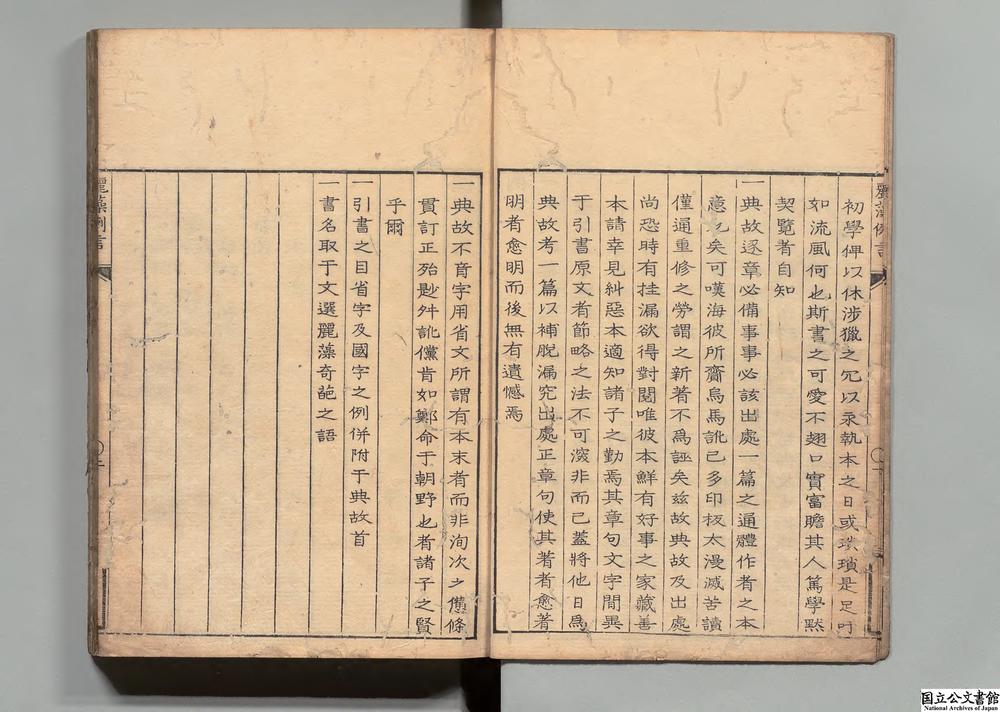 麗藻例言
初學俾以休涉獵之冗以永執本之日或瑣瑣是足吁
如流風何也斯書之可愛不翅口實富贍其人篤學默
契覽者自知
一典故逐章必備事事必該出處一篇之通體作者之本
意見矣可嘆海彼所齎烏馬訛已多印板太漫滅苦讀
僅通重修之勞謂之新著不為誣矣茲故典故及出處
尚恐時有挂漏欲得對閱唯彼本鮮有好事之家藏善
本請幸見糾惡本適知諸子之勤焉其章句文字間異
于引書原文者節略之法不可深非而已蓋將他日為
典故考一篇以補脫漏究出處正章句使其著者愈著
明者愈明而後無有遺憾焉
一典故不音字用省文所謂有本末者而非洵次之舊條
貫訂正殆尟舛訛儻肯如鄭命于朝野也者諸子之賢
乎爾
一引書之目省字及國字之例併附于典故首
一書名取于文選麗藻奇葩之語
麗藻例言
国立公文書館
National Archives of Japan